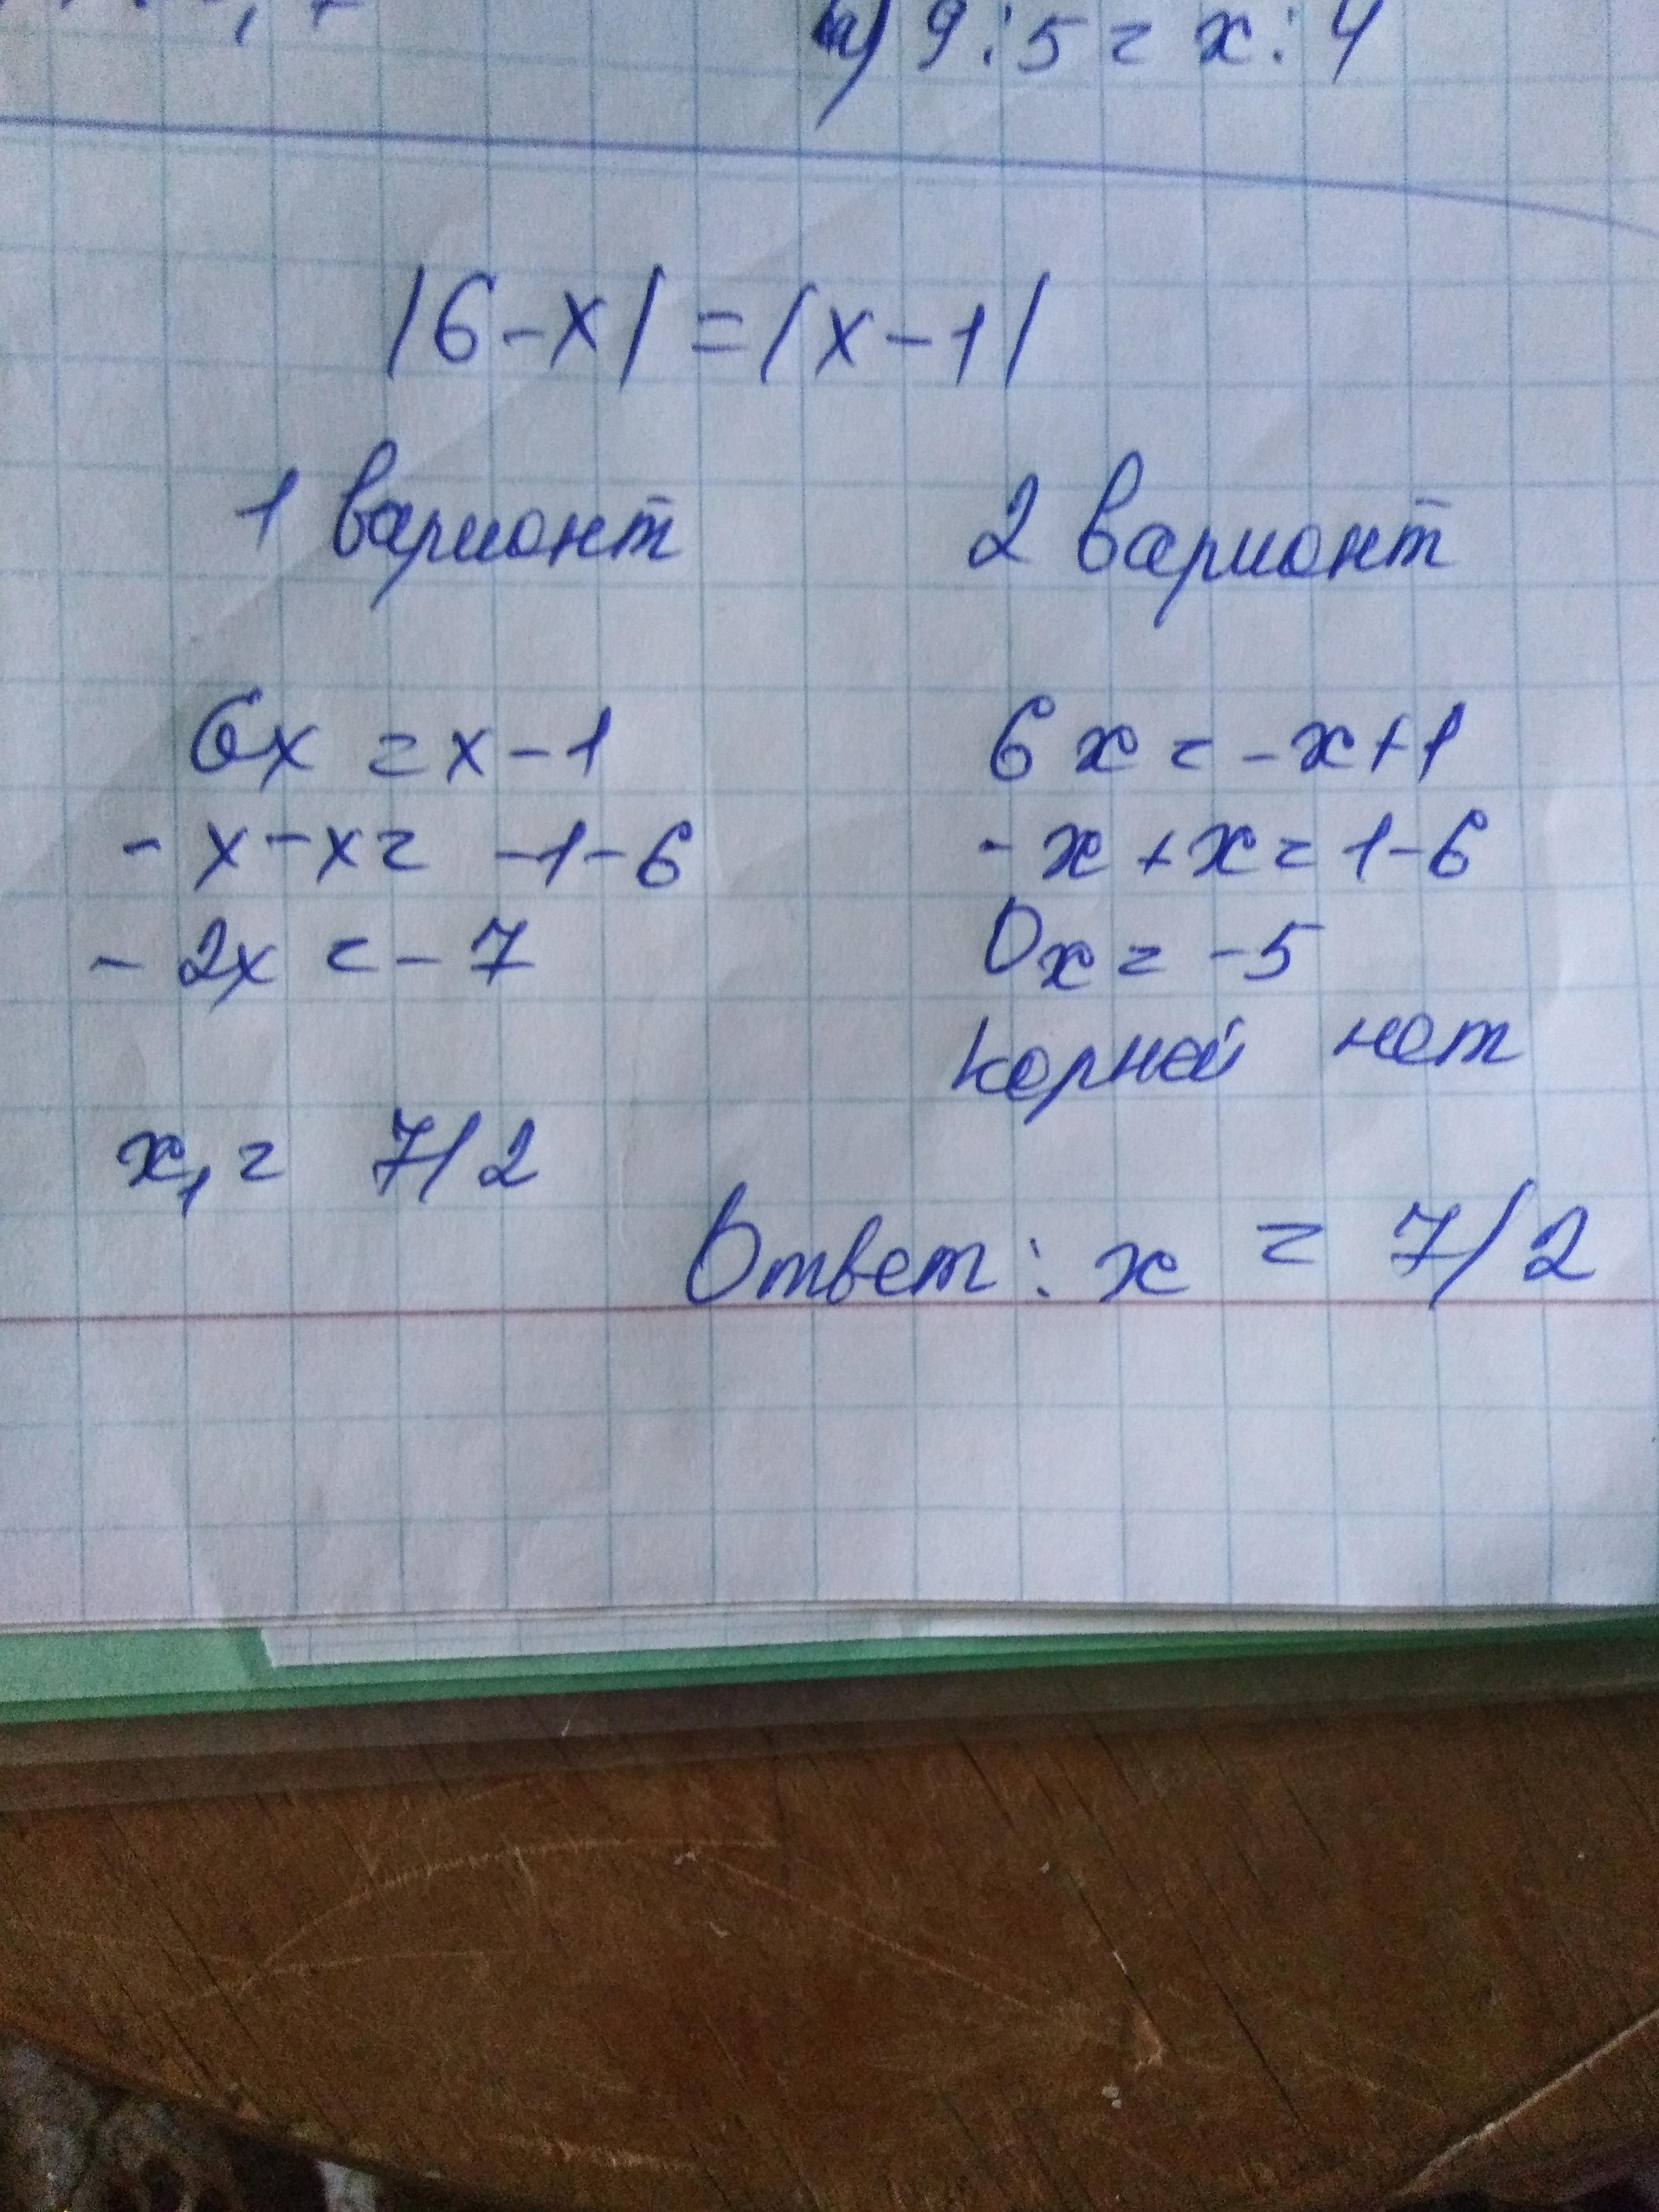 а) 9 : 5 = x : 4
|6 - x| = |x - 1|
1 вариант
6x = x - 1
- x - x = -1 - 6
- 2x = - 7
x₁ = 7/2
2 вариант
6 x = - x + 1
- x + x = 1 - 6
0x = - 5
корней нет
Ответ : x = 7/2